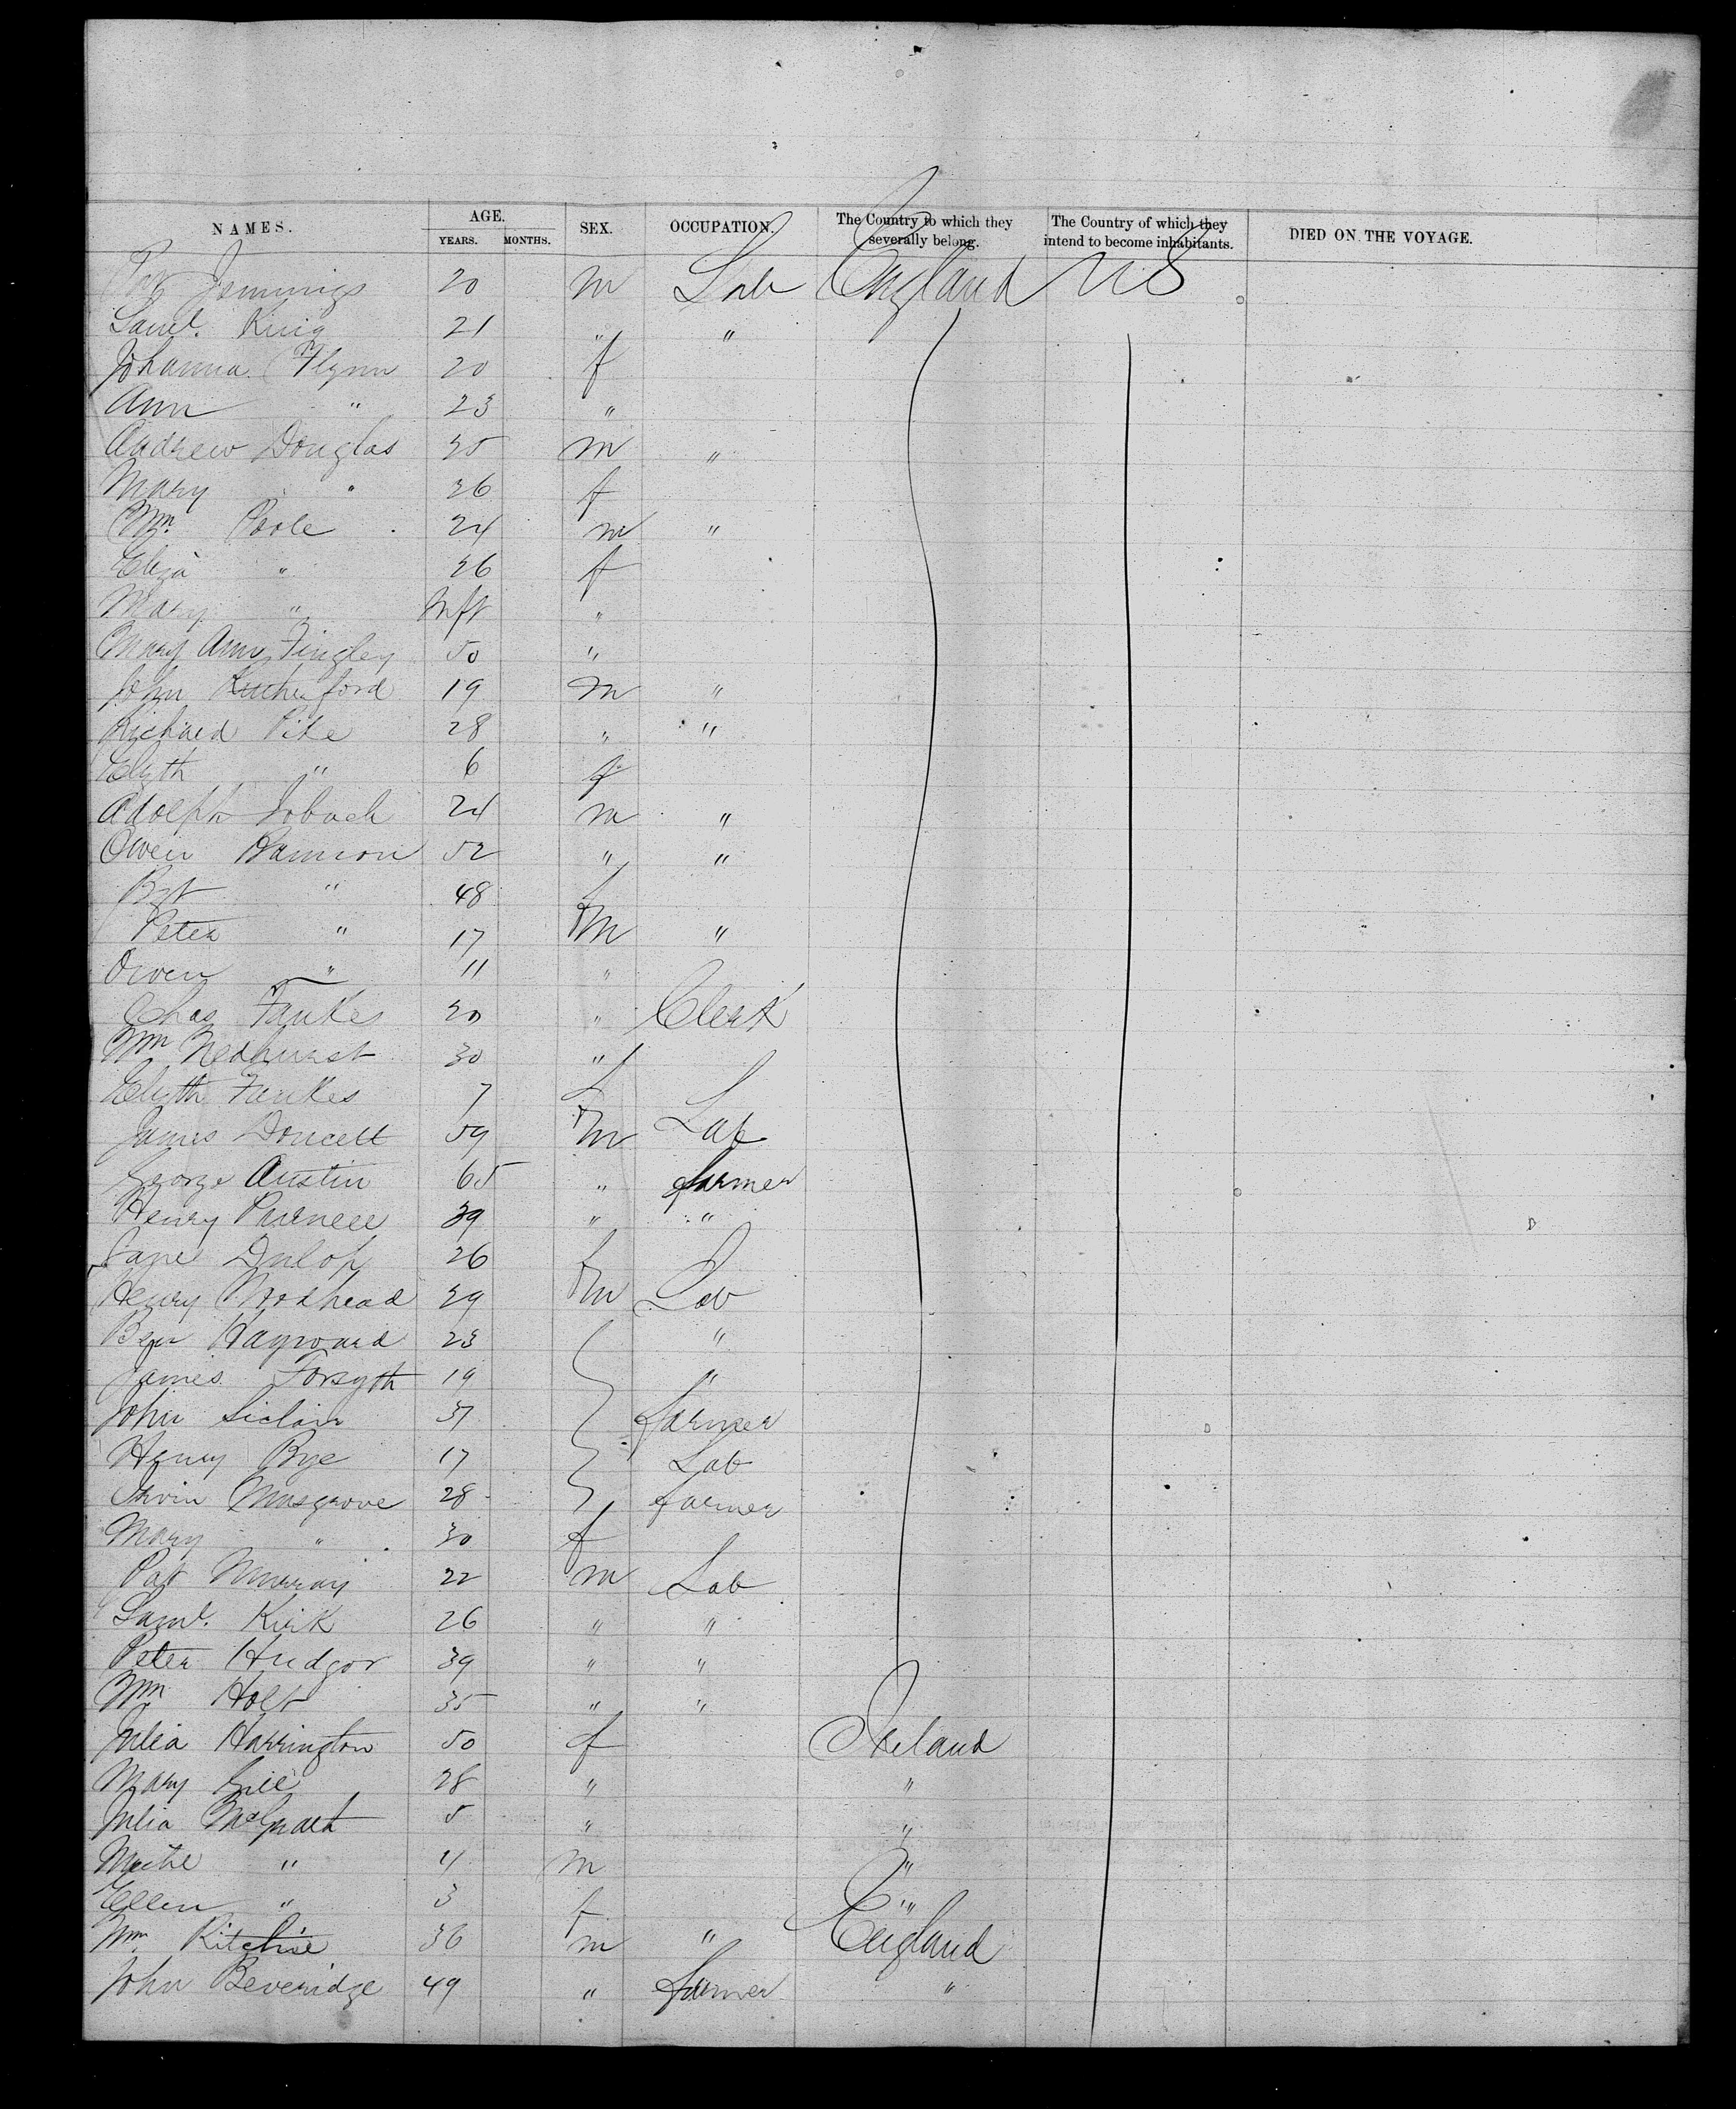 NAMES. AGE. SEX. OCCUPATION. The Country to which they severally belong. The Country of which they intend to become inhabitants. DIED ON THE VOYAGE.
YEARS. MONTHS.
Pat Jennings 20 m Lab England US
Saml. King 21 " "
Johanna Flynn 20 f
Ann " 23 "
Andrew Douglas 35 m "
Mary " 26 f
Wm. Poole 24 m "
Eliza " 26 f
Mary " Inft "
Mary Ann Tingley 50 "
John Rutherford 19 m "
Richard Pike 28 " "
Elizth " 6 f
Adolph 24 m "
Owen 52 " "
Bgt " 48 f
Peter " 17 m "
Owen " 11 "
Chas Faukes 20 " Clerk
Wm Nedhurst 30 "
Elizth Faukes 7 f
James Doucett 59 m Lab
George Austin 65 " farmer
Henry Purnell 39 " "
Jane Dunlop 26 f
Henry Woodhead 29 m Lab
Benj Hayward 23 "
James Forsyth 19 "
John Siclair 37 farmer
Henry Bye 17 Lab
Irvin Musgrove 28 farmer
Mary " 30 f
Pat Murray 22 m Lab
Saml. Kirk 26 " "
Peter Hudgor 39 " "
Wm Holt 35 " "
Julia Harrington 50 f Ireland
Mary Gill 28 " "
Julia McGrath 5 " "
4 m "
Ellen " 3 f "
Wm Ritchie 36 m " England
John Beveridge 49 " farmer "